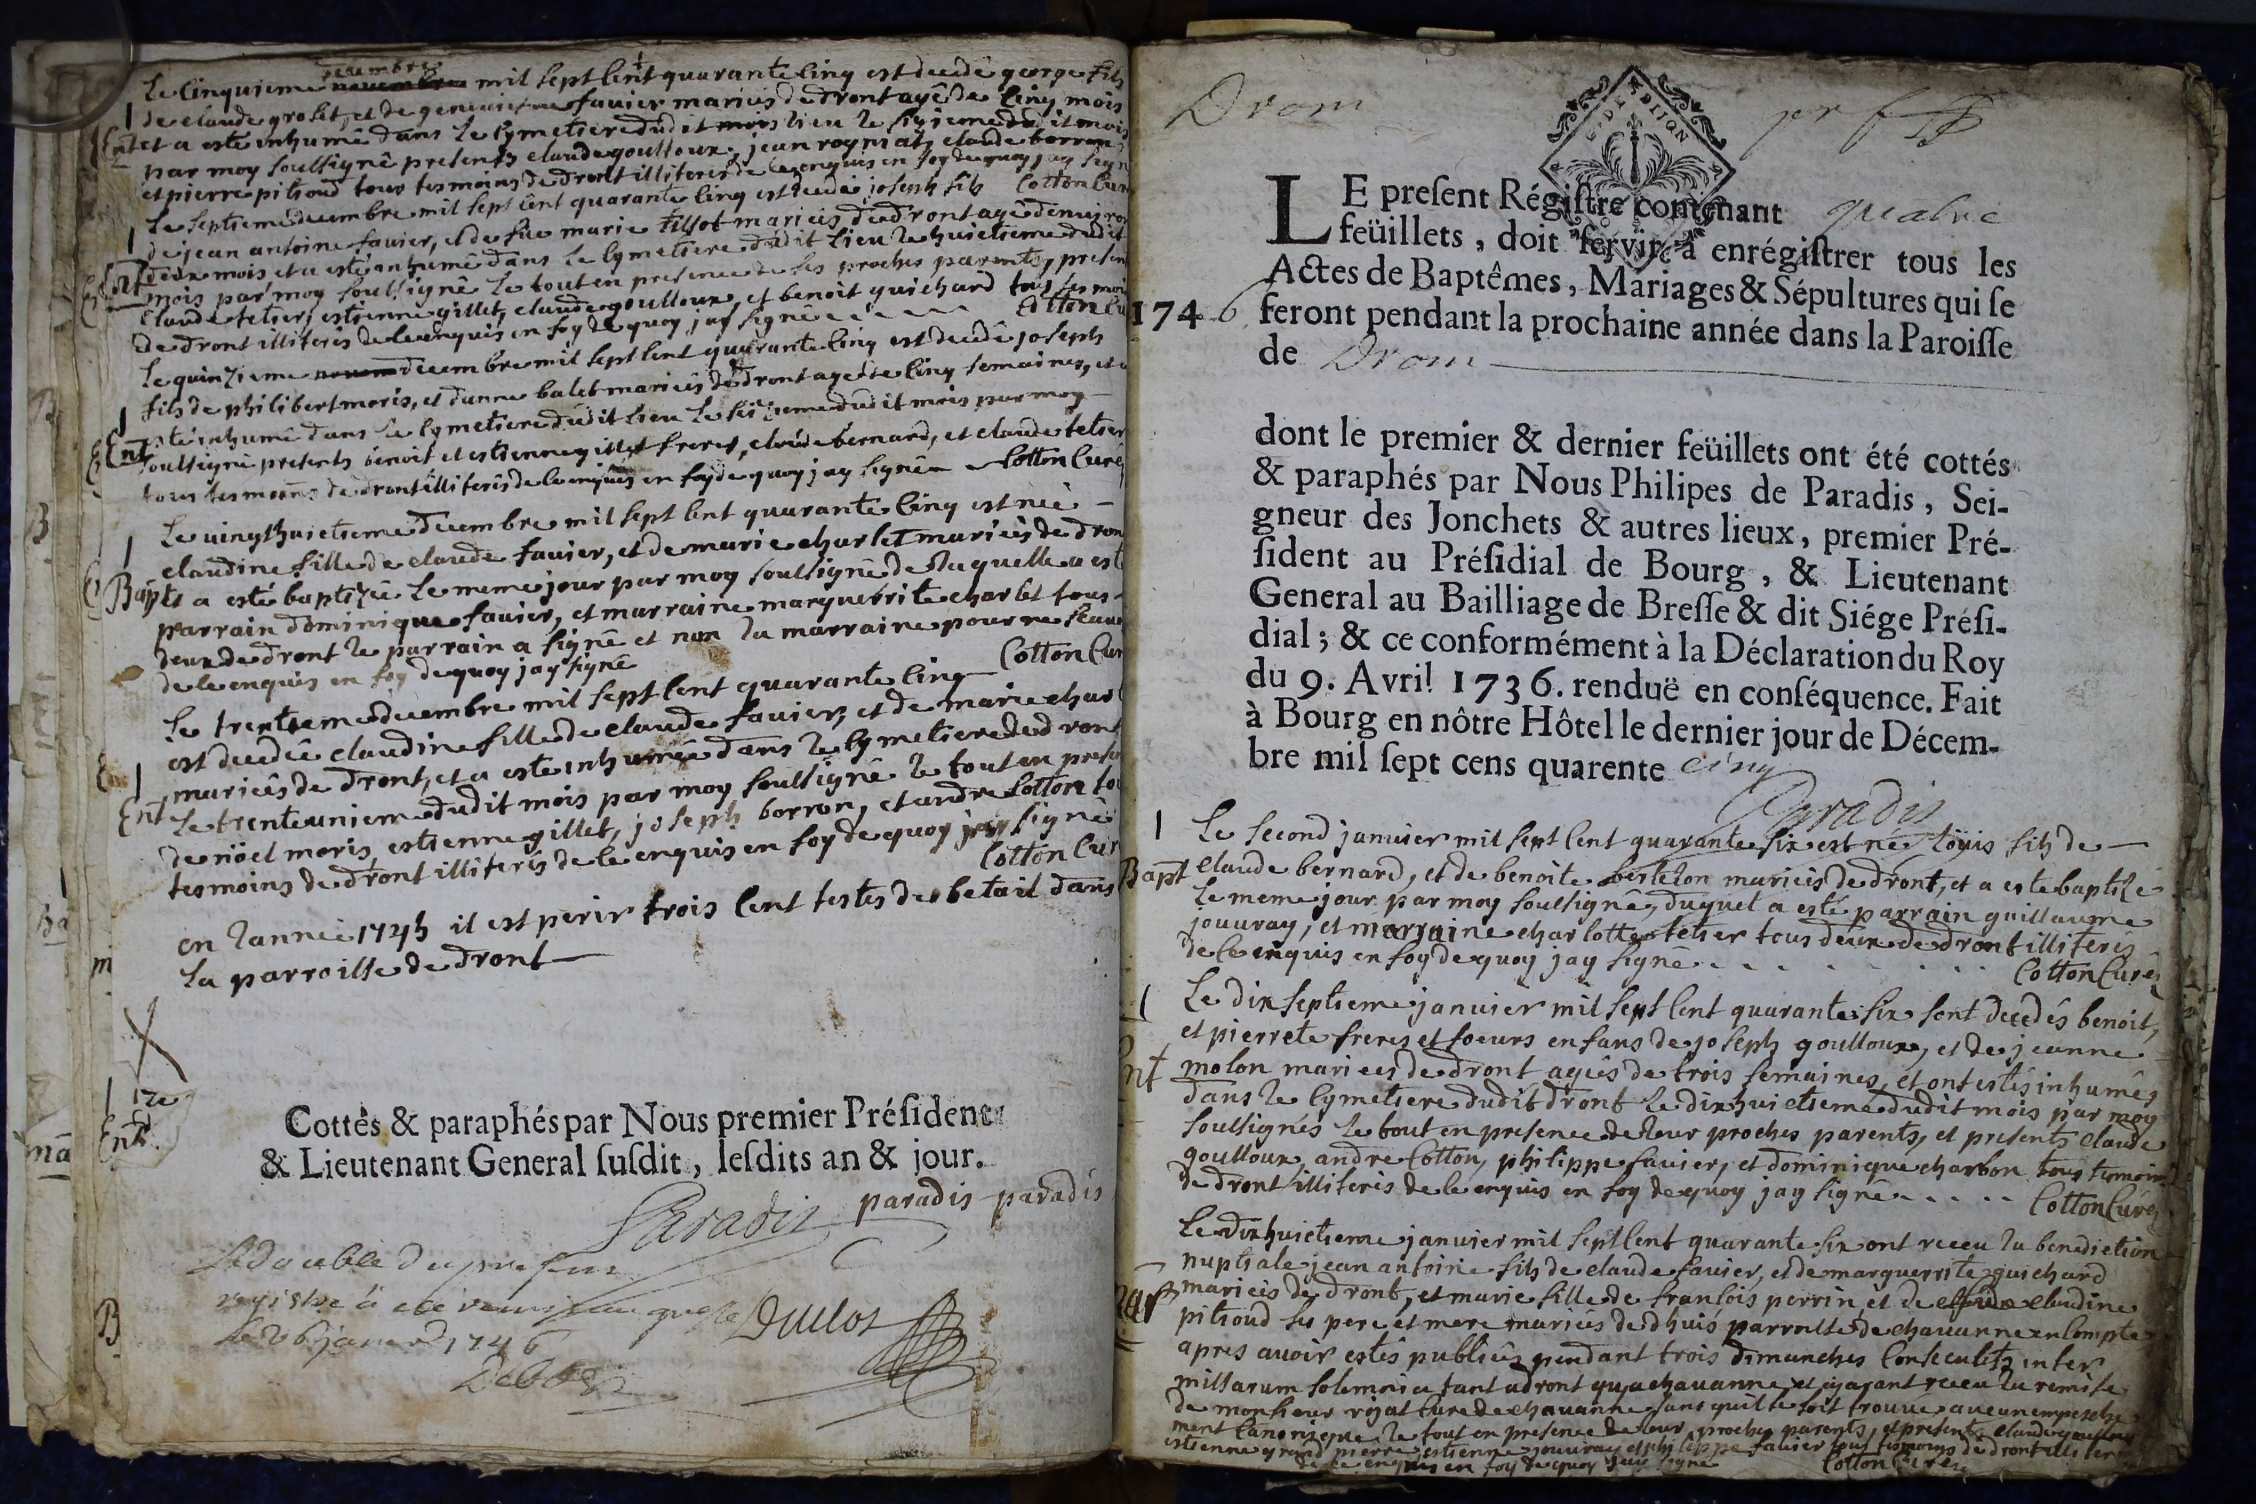 Le Cinquieme novembre decembre mil sept Cent quarante Cinq est decedé george fils
de claude groset, et de genevieve favier mariés de dront agé de Cinq mois
Ent et a esté inhumé dans le Cymetiere dudit mois lieu le sixieme dudit mois
par moy soussigné presents claude goulloux, jean roymat, claude borron,
et pierre pitioud tous tesmoins de dront illiterés de ce enquis en foy de quoy jay signé
Cotton Curé
Le septieme decembre mil sept Cent quarante Cinq est decedé joseph fils
de jean antoine favier, et de fue marie tissot mariés de dront agé denviron
Ent deux mois et a esté inhumé dans le Cymetiere dudit lieu le huictieme dudit
mois par moy soussigné le tout en presence de ses proches parents, presents
claude tetier, estienne gillet, claude goulloux, et benoit guichard tous tesmoins
de dront illiterés de ce enquis en foy de quoy jay signé Cotton Curé
Le quinzieme novem decembre mil sept Cent quarante Cinq est decedé joseph
fils de philibert moris, et danne balet mariés de dront agé de Cinq semaines, et a
esté inhumé dans le Cymetiere dudit lieu le seizieme dudit mois par moy
Ent soussigné presents benoit et estienne gillet freres, claude bernard, et claude tetier
tous tesmoins de dront illiterés de ce enquis en foy de quoy jay signé Cotton Curé
Le vingt huictieme decembre mil sept Cent quarante Cinq est née
claudine fille de claude favier, et de marie charlet mariés de dront
Bapt et a esté baptizée le meme jour par moy soussigné de laquelle a esté
parrain dominique favier, et marraine marguerrite charlet tous
deux de dront le parrain a signé et non la marraine pour ne scavoir
de ce enquis en foy de quoy jay signé Cotton Curé
Le trentieme decembre mil sept Cent quarante Cinq
est decedée claudine fille de claude favier, et de marie charlet
mariés de dront, et a esté inhumée dans le Cymetiere dud dront
Ent Le trente unieme dudit mois par moy soussigné le tout en presence
de nöel moris, estienne gillet, joseph borron, et andre Cotton tous
tesmoins de dront illiterés de ce enquis en foy de quoy jay signé
Cotton Curé
en lannée 1745 il est perir trois Cent testes de betail dans
la parroisse de dront
Cottés & paraphés par Nous premier Président
& Lieutenant General susdit, lesdits an & jour.
Paradis paradis paradis
Le double du present
registre a été remis au greffe
le 26 janer 1746
Duclos
Drom
LE present Régistre contenant quatre
feüillets, doit servir à enrégistrer tous les
Actes de Baptêmes, Mariages & Sépultures qui se
1746 feront pendant la prochaine année dans la Paroisse
de Drom
dont le premier & dernier feüillets ont été cottés
& paraphés par Nous Philipes de Paradis, Sei-
gneur des Jonchets & autres lieux, premier Pré-
sident au Présidial de Bourg, & Lieutenant
General au Bailliage de Bresse & dit Siége Prési-
dial; & ce conformément à la Déclaration du Roy
du 9. Avril 1736. renduë en conséquence. Fait
à Bourg en nôtre Hôtel le dernier jour de Décem-
bre mil sept cens quarente cinq
Paradis
Le second janvier mil sept Cent quarante six est né löuis fils de
Bapt claude bernard, et de benoite berthelon mariés de dront, et a esté baptizé
Le meme jour par moy soussigné, duquel a esté parrain guillaume
jouvray, et marraine charlotte tetier tous deux de dront illiterés
de ce enquis en foy de quoy jay signé Cotton Curé
Le dix septieme janvier mil sept Cent quarante six sont decedés benoit,
et pierrete freres et soeurs enfans de joseph goulloux, et de jeanne
Ent molon mariees de dront agés de trois semaines, et ont estés inhumés
dans le Cymetiere dudit dront le dix huictieme dudit mois par moy
soussignés le tout en presence de leur proches parents, et presents claude
goulloux, andre Cotton, philippe favier, et dominique charbon tous temoins
de dront illiteris de ce enquis en foy de quoy jay signé Cotton Curé
Le dix huictieme janvier mil sept Cent quarante six ont receu la benediction
nuptiale jean antoine fils de claude favier, et de marguerrite guichard
mariées de dront, et marie fille de francois perrin, et de claudine
pitioud ses pere et mere mariés de dhuis parroisse de chavanne en Compté
apres avoir estés publiés pendant trois dimanches Consecutifs inter
missarum solemnia tant a dront qua chavanne, et ayant receu la remise
de monsieur rojat Curé de chavanne sans quil se soit trouvé aucun empeche
ment Canonique le tout en presence de leur proches parents, et presents claude goulloux
estienne grand pierre, estienne jouvray et philippe favier tous tesmoins de dront illiterés
de ce enquis en foy de quoy jay signé Cotton Curé